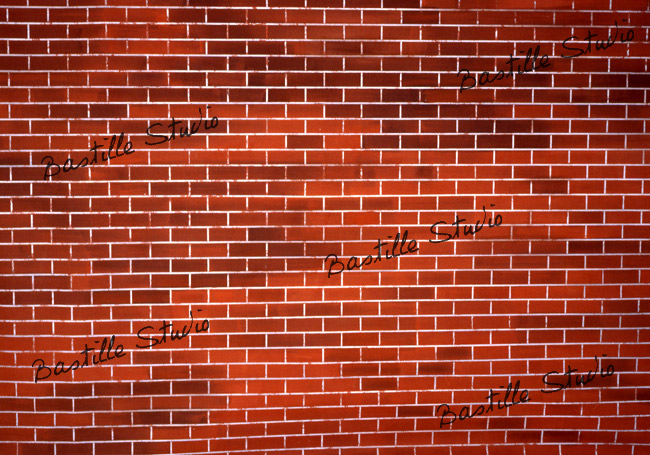 Bastille Studio
Bastille Studio
Bastille Studio
Bastille Studio
Bastille Studio